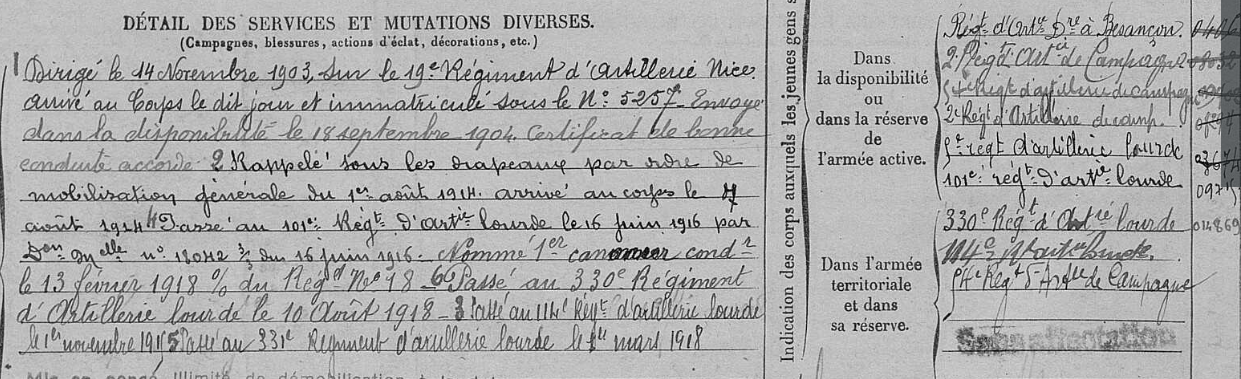 DÉTAIL DES SERVICES ET MUTATIONS DIVERSES.
(Campagnes, blessures, actions d'éclat, décorations, etc.)
Dirigé le 14 Novembre 1903, sur le 19e Régiment d'Artillerie Nice
arrivé au Corps le dit jour et immatriculé sous le No 5257. Envoyé
dans la disponibilité le 18 septembre 1904. Certificat de bonne
conduite accordé 2 Rappelé sous les drapeaux par ordre de
mobilisation générale du 1er août 1914. arrivé au corps le
août 1914 4 Passé au 101e Régt d'artie lourde le 16 juin 1916 par
Don Mlle no 18042 3/3 du 16 juin 1916. Nommé 1er cond r
le 13 février 1918 % du Régt No 18 6 Passé au 330e Régiment
d'Artillerie lourde le 10 Août 1918 - 3 Passé au 114e Régt d'artillerie lourde
le 1er novembre 1915 5 Passé au 331e Régiment d'artillerie lourde le 1er mars 1918
Indication des corps auxquels les jeunes gens s
Dans
la disponibilité
ou
dans la réserve
de
l'armée active.
Dans l'armée
territoriale
et dans
sa réserve.
Régt d'Artie Dre à Besançon.
2e Régt d'Artie de Campagne
Régt d'artillerie de campagne
2e Régt d'Artillerie de camp.
régt d'artillerie lourde
101e régt d'artie lourde
330e Régt d'Artie lourde 014869
114e lourde.
Régt d'Artie de Campagne